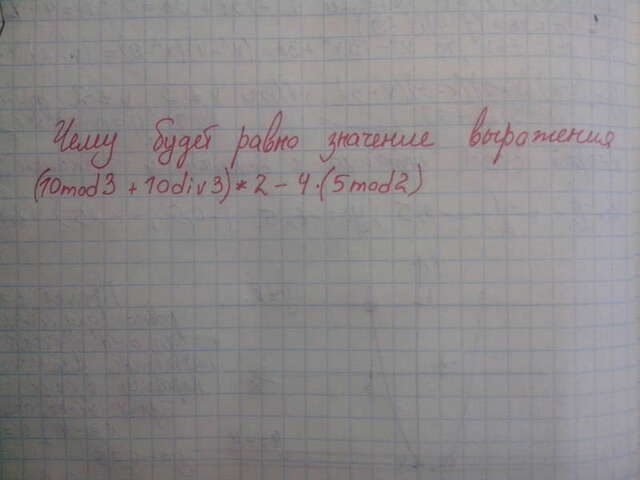 Чему будет равно значение выражения
(10mod3 + 10div3) * 2 - 4·(5mod2)